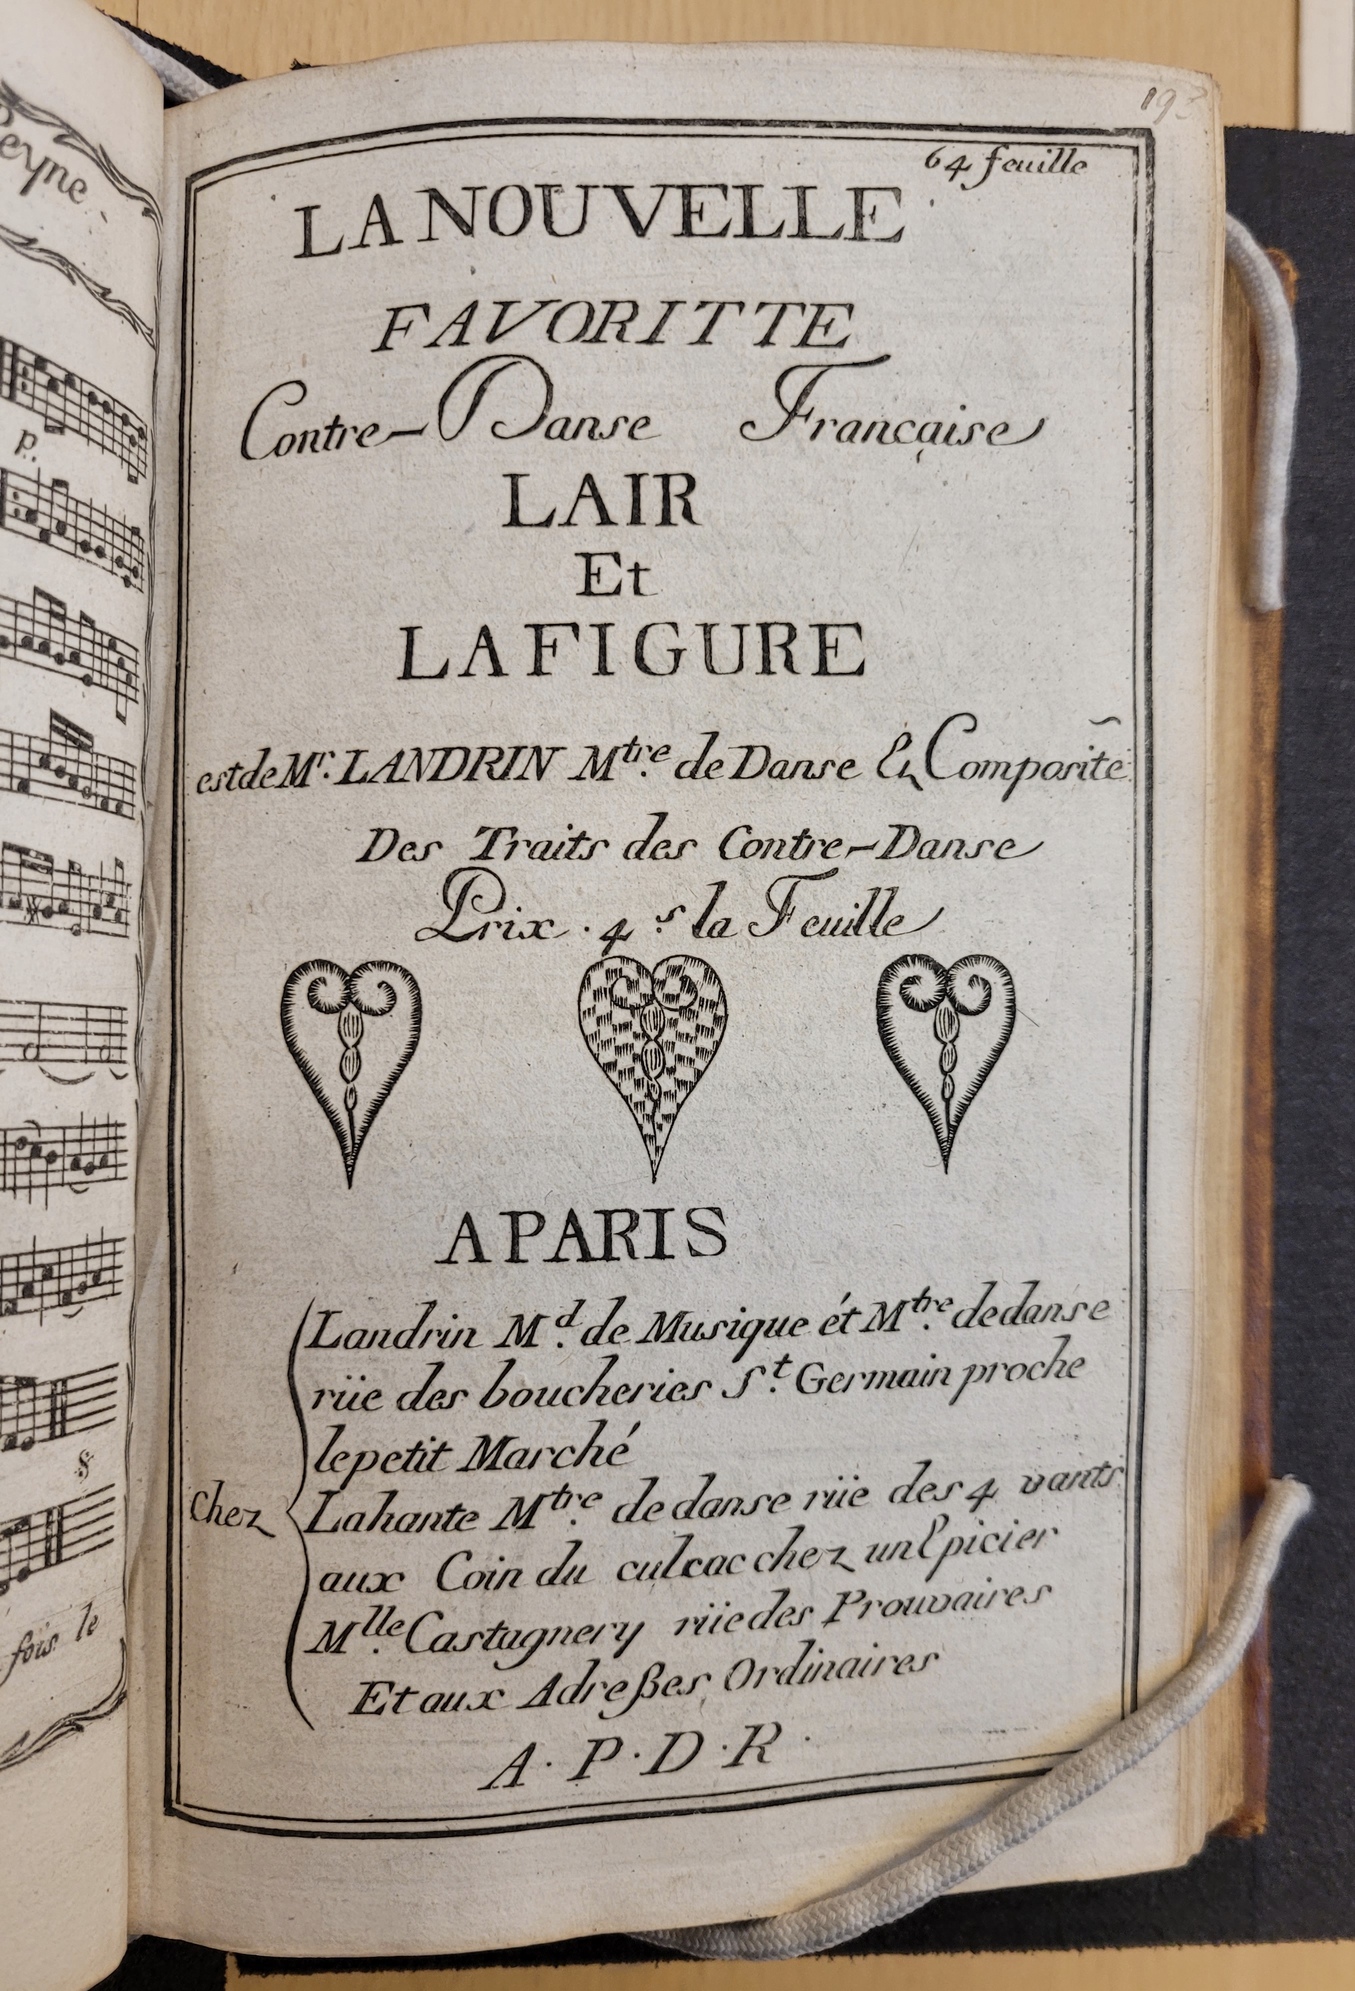 eyne
p.
fois le
193
64 feuille
LA NOUVELLE
FAVORITTE
Contre-Danse Française
LAIR
Et
LA FIGURE
est de Mr. LANDRIN Mtre. de Danse & Composité
Des Traits des Contre-Danse
Prix. 4 s. la Feuille
A PARIS
Landrin Md. de Musique ét Mtre. de danse
rüe des boucheries St. Germain proche
le petit Marché
Chez
Lahante Mtre. de danse rüe des 4 vants
aux Coin du culcac chez un Epicier
Mlle. Castagnery rüe des Prouvaires
Et aux Adreßes Ordinaires
A. P. D. R.